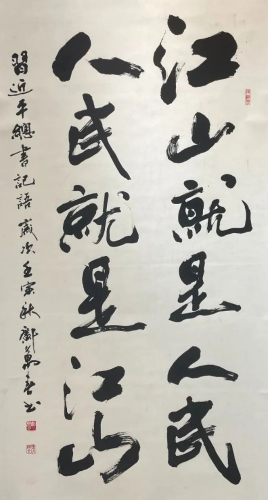 江山就是人民
人民就是江山
習近平總書記語歲次壬寅秋鄭萬書